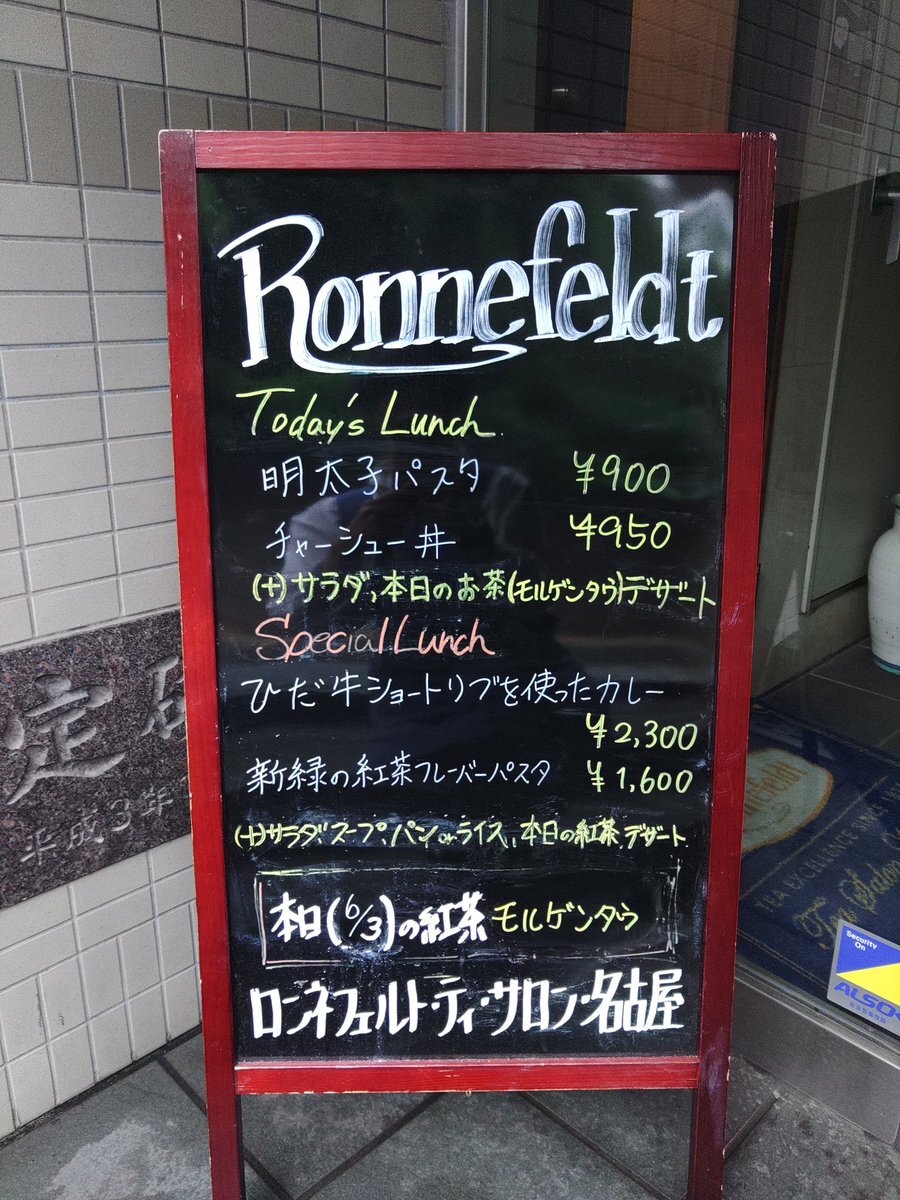 Ronnefeldt
Today's Lunch
明太子パスタ ¥900
チャーシュー丼 ¥950
(+)サラダ、本日のお茶(モルゲンタウ)デザート
Special Lunch
ひだ牛ショートリブを使ったカレー
¥2,300
新緑の紅茶フレーバーパスタ ¥1,600
(+)サラダ、スープ、パンorライス、本日の紅茶、デザート
本日(6/3)の紅茶 モルゲンタウ
ローネフェルトティーサロン・名古屋
定
平成3年
Security
On
ALSO